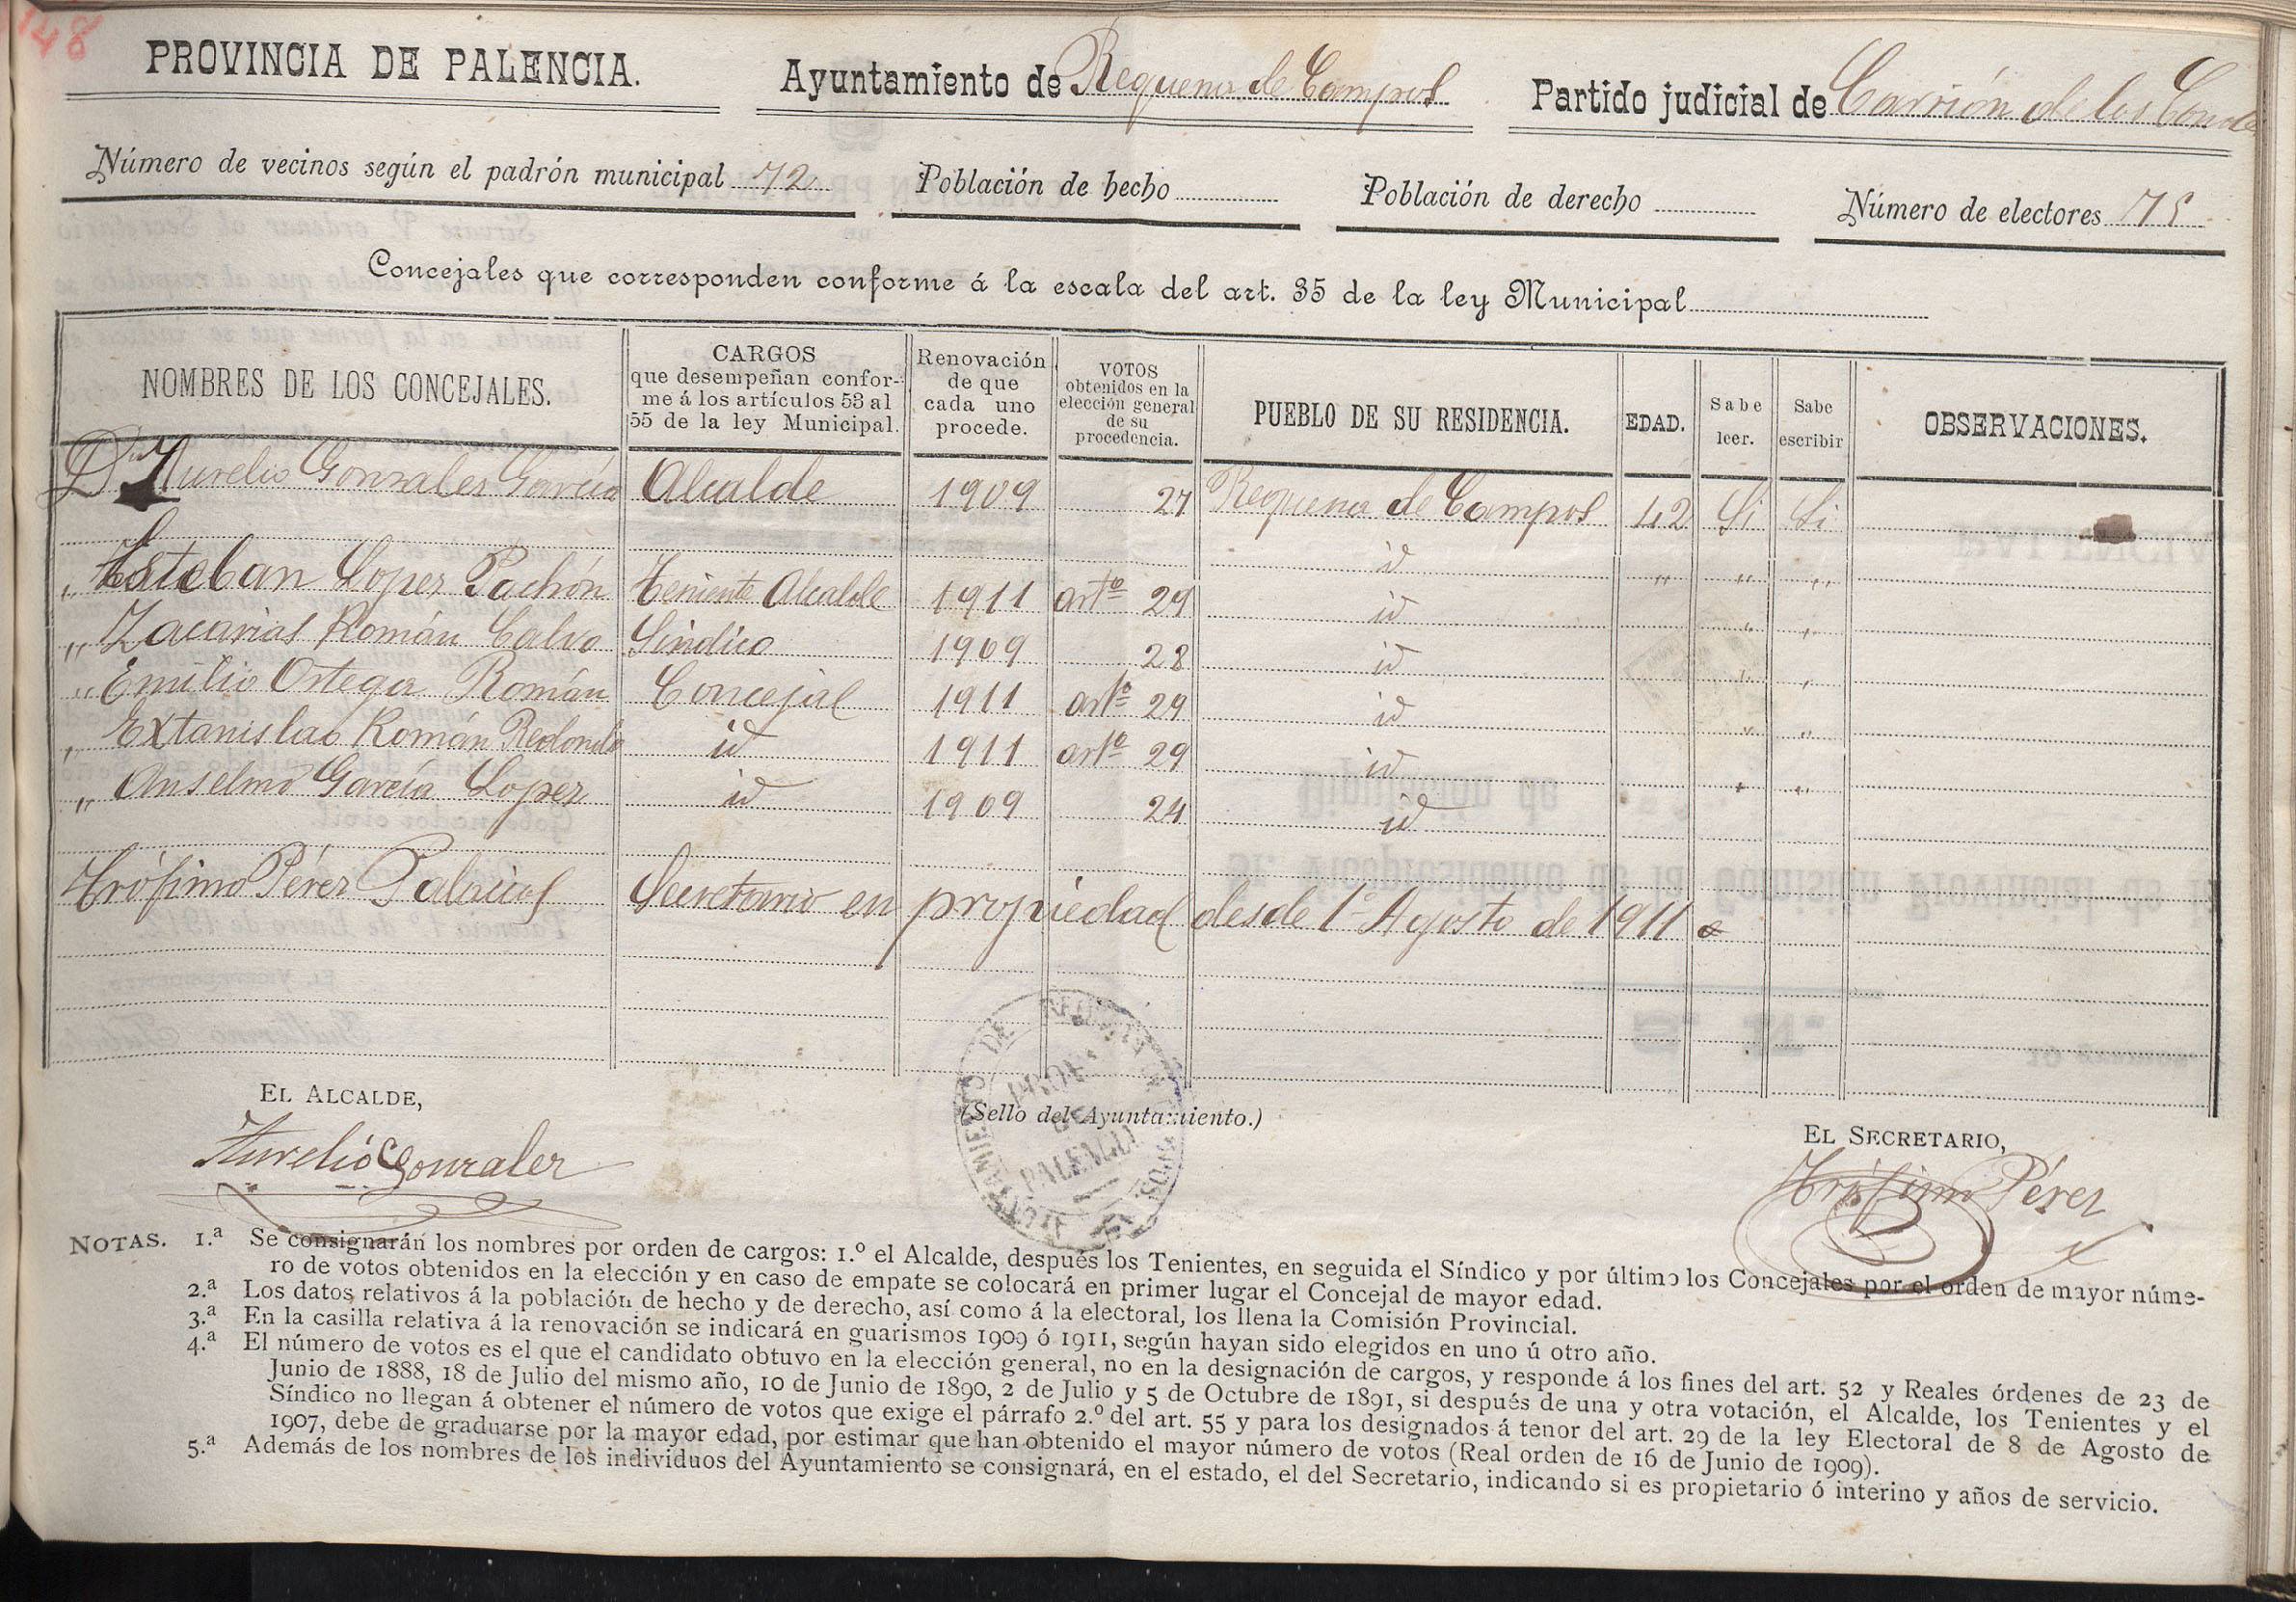 148
PROVINCIA DE PALENCIA. Ayuntamiento de Requena de Campos Partido judicial de Carrión de los Condes
Número de vecinos según el padrón municipal 72 Población de hecho Población de derecho Número de electores 75
Concejales que corresponden conforme á la escala del art. 35 de la ley Municipal
NOMBRES DE LOS CONCEJALES. CARGOS que desempeñan conforme á los artículos 53 al 55 de la ley Municipal. Renovación de que cada uno procede. VOTOS obtenidos en la elección general de su procedencia. PUEBLO DE SU RESIDENCIA. EDAD. Sabe leer. Sabe escribir OBSERVACIONES.
Dn Aurelio Gonzales García Alcalde 1909 27 Requena de Campos 42 Si Si
id
„ Esteban Lopez Pachón Teniente Alcalde 1911 artº 29 id „ „ „
„ Zacarias Román Calvo Sindico 1909 28 id „ „
„ Emilio Ortega Román Concejal 1911 artº 29 id „ „
„ Extanislao Román Redondo id 1911 artº 29 id „ „
„ Anselmo García Lopez id 1909 24 id „ „
Trófimo Pérez Palacios Secretario en propiedad desde 1º Agosto de 1911
EL ALCALDE,
Aurelio Gonzalez
(Sello del Ayuntamiento.)
AYUNTAMIENTO DE REQUENA DE CAMPOS
PROVª DE PALENCIA
EL SECRETARIO,
Trófimo Pérez
NOTAS. 1.ª Se consignarán los nombres por orden de cargos: 1.º el Alcalde, después los Tenientes, en seguida el Síndico y por último los Concejales por el orden de mayor núme-
ro de votos obtenidos en la elección y en caso de empate se colocará en primer lugar el Concejal de mayor edad.
2.ª Los datos relativos á la población de hecho y de derecho, así como á la electoral, los llena la Comisión Provincial.
3.ª En la casilla relativa á la renovación se indicará en guarismos 1909 ó 1911, según hayan sido elegidos en uno ú otro año.
4.ª El número de votos es el que el candidato obtuvo en la elección general, no en la designación de cargos, y responde á los fines del art. 52 y Reales órdenes de 23 de
Junio de 1888, 18 de Julio del mismo año, 10 de Junio de 1890, 2 de Julio y 5 de Octubre de 1891, si después de una y otra votación, el Alcalde, los Tenientes y el
Síndico no llegan á obtener el número de votos que exige el párrafo 2.º del art. 55 y para los designados á tenor del art. 29 de la ley Electoral de 8 de Agosto de
1907, debe de graduarse por la mayor edad, por estimar que han obtenido el mayor número de votos (Real orden de 16 de Junio de 1909).
5.ª Además de los nombres de los individuos del Ayuntamiento se consignará, en el estado, el del Secretario, indicando si es propietario ó interino y años de servicio.